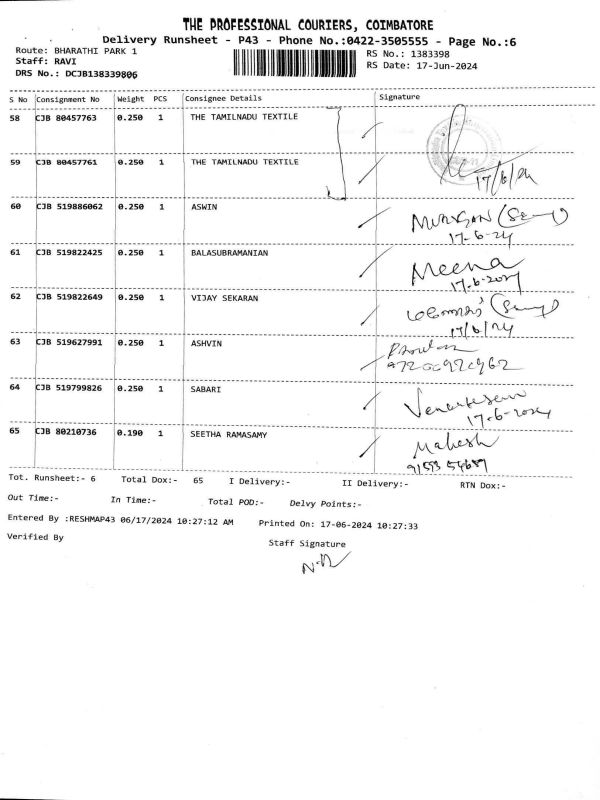 THE PROFESSIONAL COURIERS, COIMBATORE
Delivery Runsheet - P43 - Phone No.:0422-3505555 - Page No.:6
Route: BHARATHI PARK 1 RS No.: 1383398
Staff: RAVI RS Date: 17-Jun-2024
DRS No.: DCJB138339806
S No Consignment No Weight PCS Consignee Details Signature
58 CJB 80457763 0.250 1 THE TAMILNADU TEXTILE
59 CJB 80457761 0.250 1 THE TAMILNADU TEXTILE
17/6/24
60 CJB 519886062 0.250 1 ASWIN MURUGAN
17-6-24
61 CJB 519822425 0.250 1 BALASUBRAMANIAN Meena
17-6-2024
62 CJB 519822649 0.250 1 VIJAY SEKARAN
17/6/24
63 CJB 519627991 0.250 1 ASHVIN
64 CJB 519799826 0.250 1 SABARI
17-6-2024
65 CJB 80210736 0.190 1 SEETHA RAMASAMY Mahesh
Tot. Runsheet:- 6 Total Dox:- 65 I Delivery:- II Delivery:- RTN Dox:-
Out Time:- In Time:- Total POD:- Delvy Points:-
Entered By :RESHMAP43 06/17/2024 10:27:12 AM Printed On: 17-06-2024 10:27:33
Verified By Staff Signature